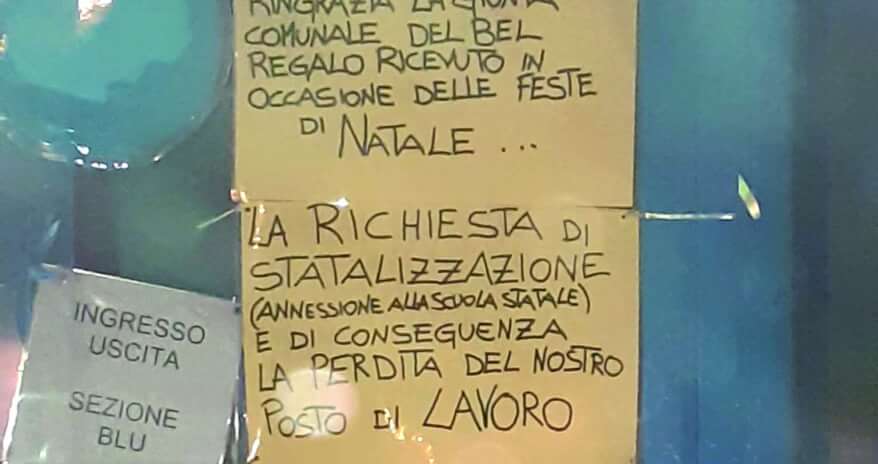 RINGRAZIA LA GIUNTA
COMUNALE DEL BEL
REGALO RICEVUTO IN
OCCASIONE DELLE FESTE
DI NATALE ...
LA RICHIESTA DI
STATALIZZAZIONE
(ANNESSIONE ALLA SCUOLA STATALE)
E DI CONSEGUENZA
LA PERDITA DEL NOSTRO
POSTO DI LAVORO
INGRESSO
USCITA
SEZIONE
BLU